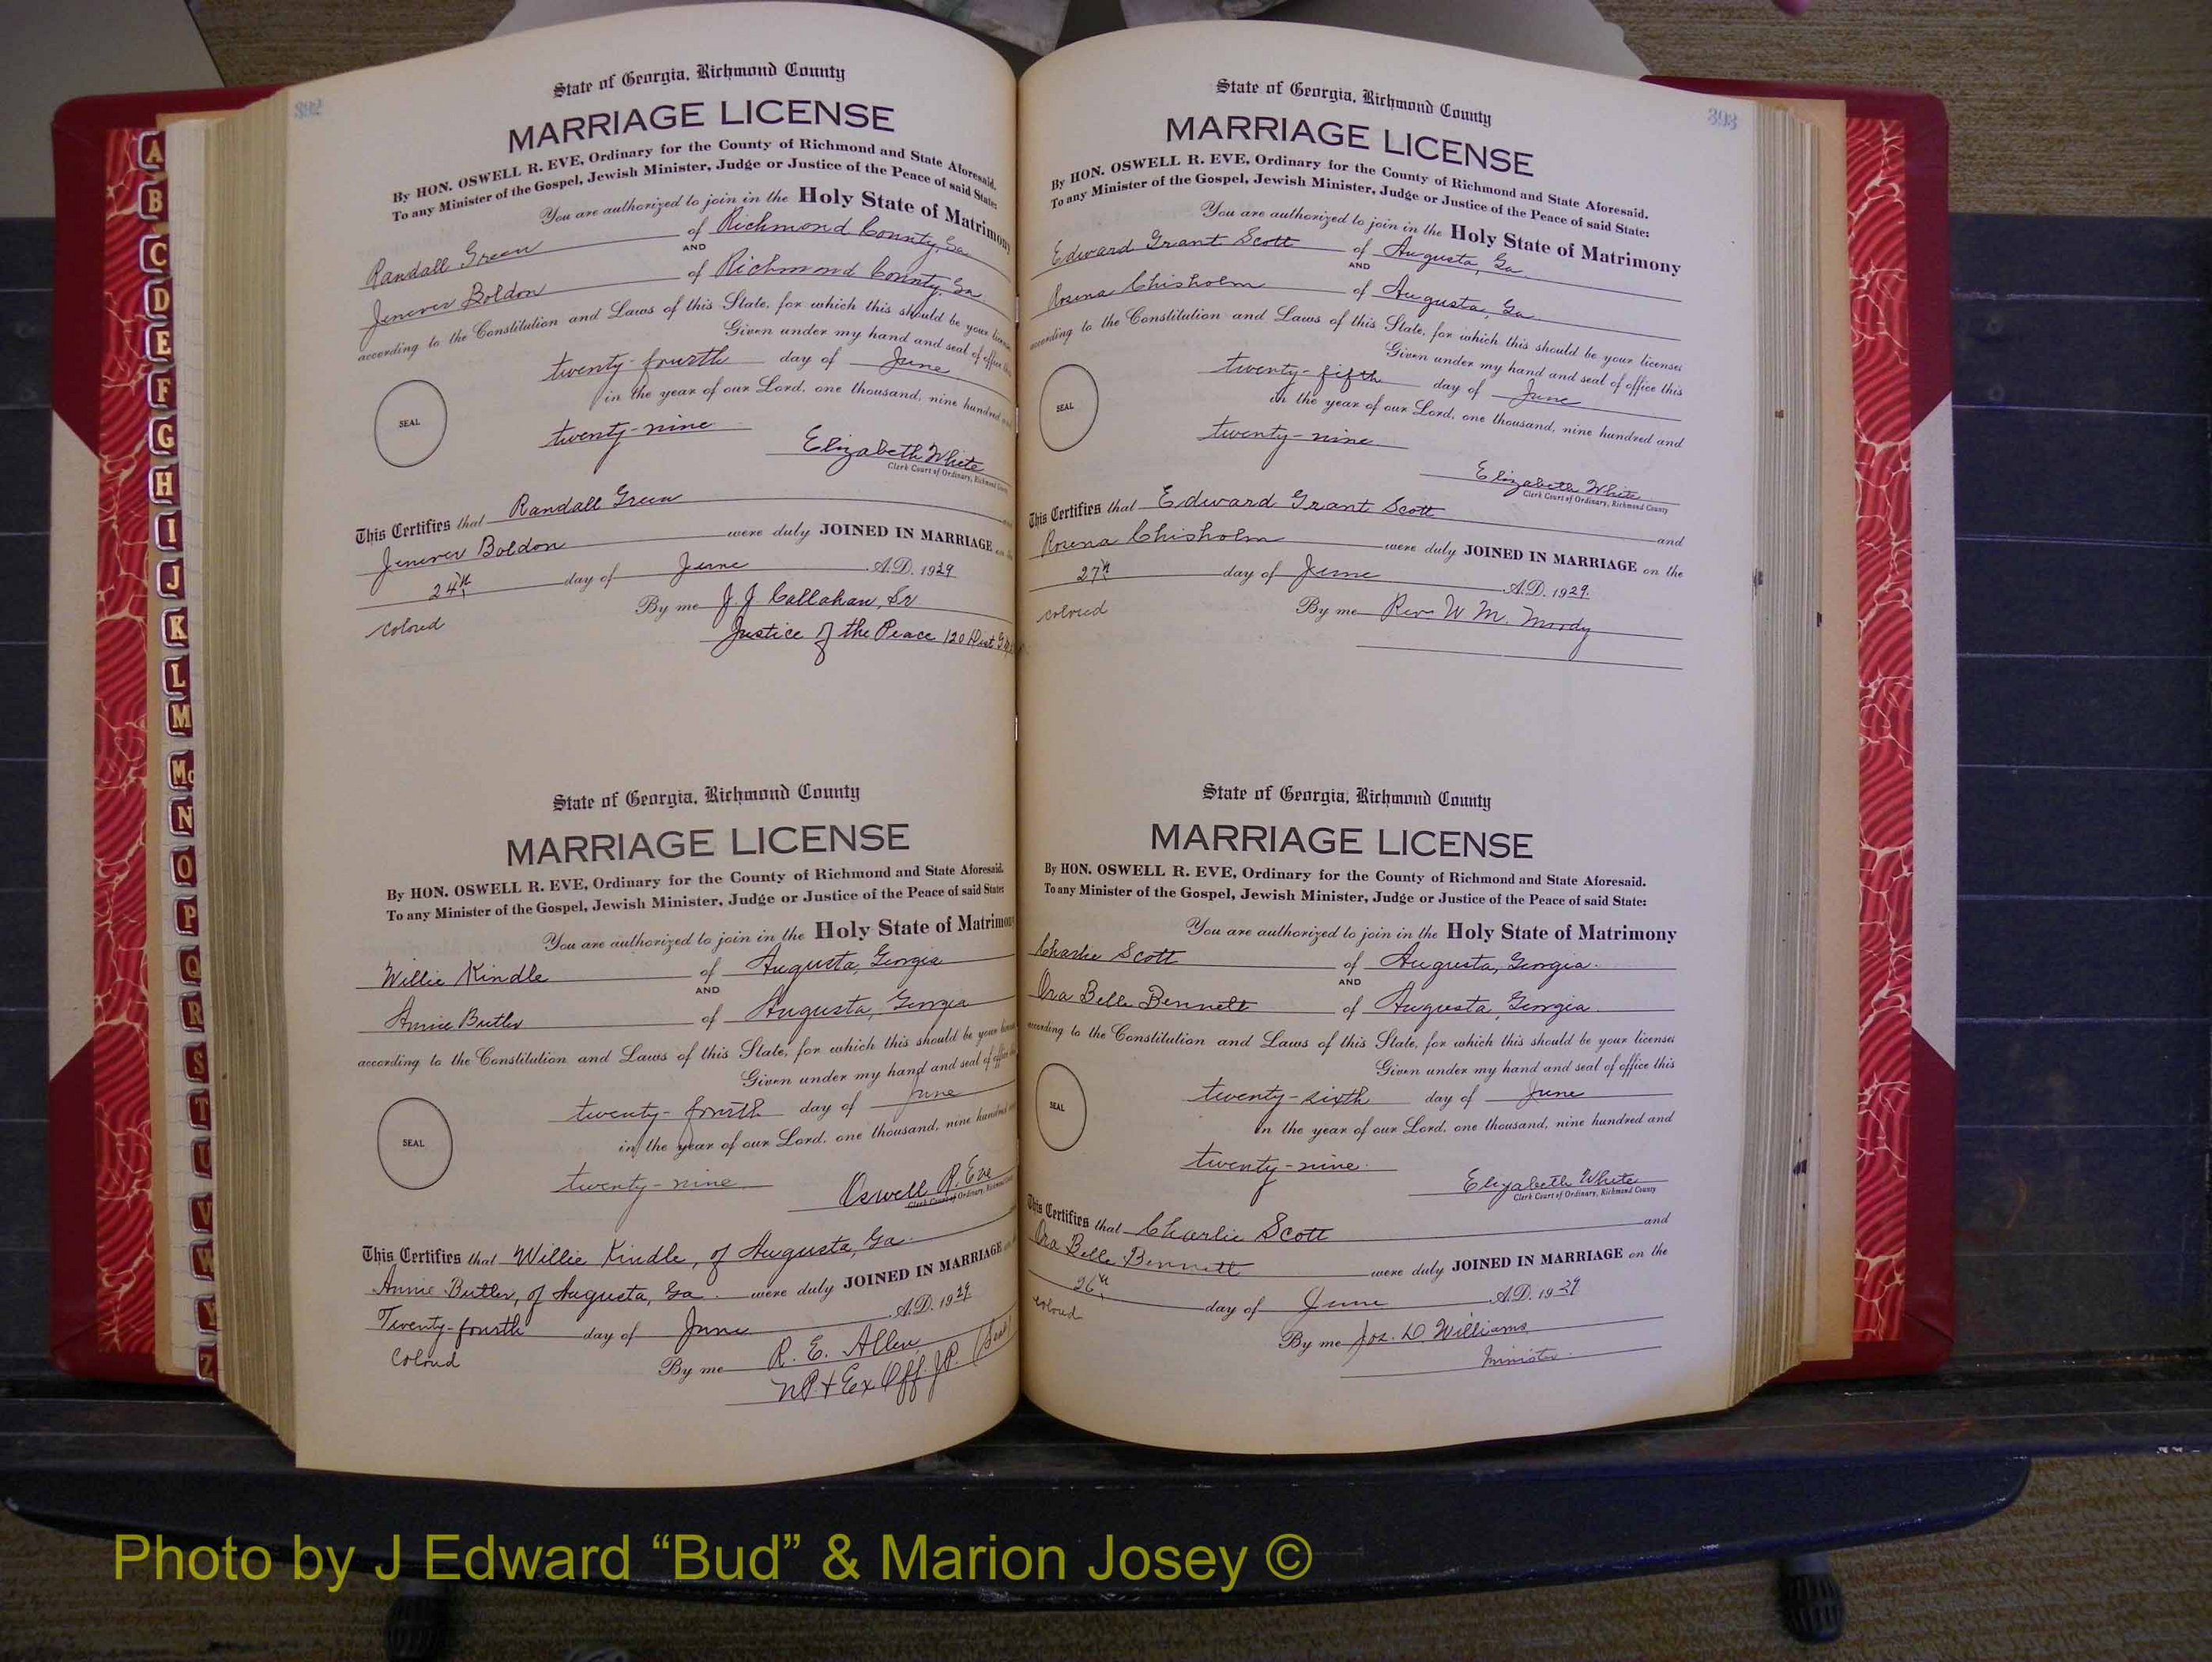 A
B
C
D
E
F
G
H
I
J
K
L
M
Mc
N
O
P
Q
R
S
T
U
V
W
Y
Z
392
State of Georgia, Richmond County
MARRIAGE LICENSE
By HON. OSWELL R. EVE, Ordinary for the County of Richmond and State Aforesaid.
To any Minister of the Gospel, Jewish Minister, Judge or Justice of the Peace of said State:
You are authorized to join in the Holy State of Matrimony
Randall Green of Richmond County, Ga.
AND
Jenever Boldon of Richmond County, Ga.
according to the Constitution and Laws of this State, for which this should be your license
Given under my hand and seal of office this
twenty-fourth day of June
in the year of our Lord, one thousand, nine hundred
SEAL
twenty-nine
Elizabeth White
Clerk Court of Ordinary, Richmond County
This Certifies that Randall Green
Jenever Boldon were duly JOINED IN MARRIAGE on
24th day of June A.D. 1929
colored
By me J. J. Callahan, Sr
Justice of the Peace 120 Dist G.M.
State of Georgia, Richmond County
MARRIAGE LICENSE
By HON. OSWELL R. EVE, Ordinary for the County of Richmond and State Aforesaid.
To any Minister of the Gospel, Jewish Minister, Judge or Justice of the Peace of said State:
You are authorized to join in the Holy State of Matrimony
Willie Kindle of Augusta, Georgia
AND
Annie Butler of Augusta, Georgia
according to the Constitution and Laws of this State, for which this should be your license
Given under my hand and seal of office
twenty-fourth day of June
in the year of our Lord, one thousand, nine hundred
SEAL
twenty-nine
Oswell R. Eve
Clerk Court of Ordinary, Richmond County
This Certifies that Willie Kindle, of Augusta, Ga.
Annie Butler, of Augusta, Ga. were duly JOINED IN MARRIAGE
Twenty-fourth day of June A.D. 1929
Colored
By me R. E. Allen (Seal)
N.P. + Ex Off. J.P.
393
State of Georgia, Richmond County
MARRIAGE LICENSE
By HON. OSWELL R. EVE, Ordinary for the County of Richmond and State Aforesaid.
To any Minister of the Gospel, Jewish Minister, Judge or Justice of the Peace of said State:
You are authorized to join in the Holy State of Matrimony
Edward Grant Scott of Augusta, Ga
AND
Rosena Chisholm of Augusta, Ga
according to the Constitution and Laws of this State, for which this should be your licenses
Given under my hand and seal of office this
twenty-fifth day of June
in the year of our Lord, one thousand, nine hundred and
SEAL
twenty-nine
Elizabeth White
Clerk Court of Ordinary, Richmond County
This Certifies that Edward Grant Scott and
Rosena Chisholm were duly JOINED IN MARRIAGE on the
27th day of June A.D. 1929.
colored
By me Rev W. M. Mordy
State of Georgia, Richmond County
MARRIAGE LICENSE
By HON. OSWELL R. EVE, Ordinary for the County of Richmond and State Aforesaid.
To any Minister of the Gospel, Jewish Minister, Judge or Justice of the Peace of said State:
You are authorized to join in the Holy State of Matrimony
Charlie Scott of Augusta, Georgia.
AND
Ora Belle Bennett of Augusta, Georgia.
according to the Constitution and Laws of this State, for which this should be your licenses
Given under my hand and seal of office this
twenty-sixth day of June
in the year of our Lord, one thousand, nine hundred and
SEAL
twenty-nine.
Elizabeth White
Clerk Court of Ordinary, Richmond County
This Certifies that Charlie Scott and
Ora Belle Bennett were duly JOINED IN MARRIAGE on the
26th day of June A.D. 1929
colored
By me Jos. D. Williams
Minister.
Photo by J Edward “Bud” & Marion Josey ©